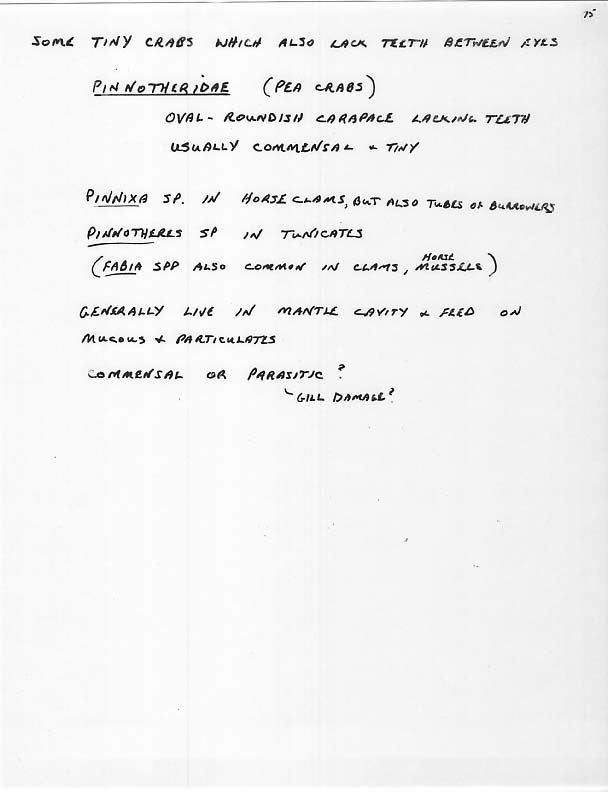 75
SOME TINY CRABS WHICH ALSO LACK TEETH BETWEEN EYES
PINNOTHERIDAE (PEA CRABS)
OVAL - ROUNDISH CARAPACE LACKING TEETH
USUALLY COMMENSAL & TINY
PINNIXA SP. IN HORSE CLAMS, BUT ALSO TUBES OF BURROWERS
PINNOTHERES SP IN TUNICATES
(FABIA SPP ALSO COMMON IN CLAMS, HORSE MUSSELS)
GENERALLY LIVE IN MANTLE CAVITY & FEED ON
MUCOUS & PARTICULATES
COMMENSAL OR PARASITIC?
GILL DAMAGE?